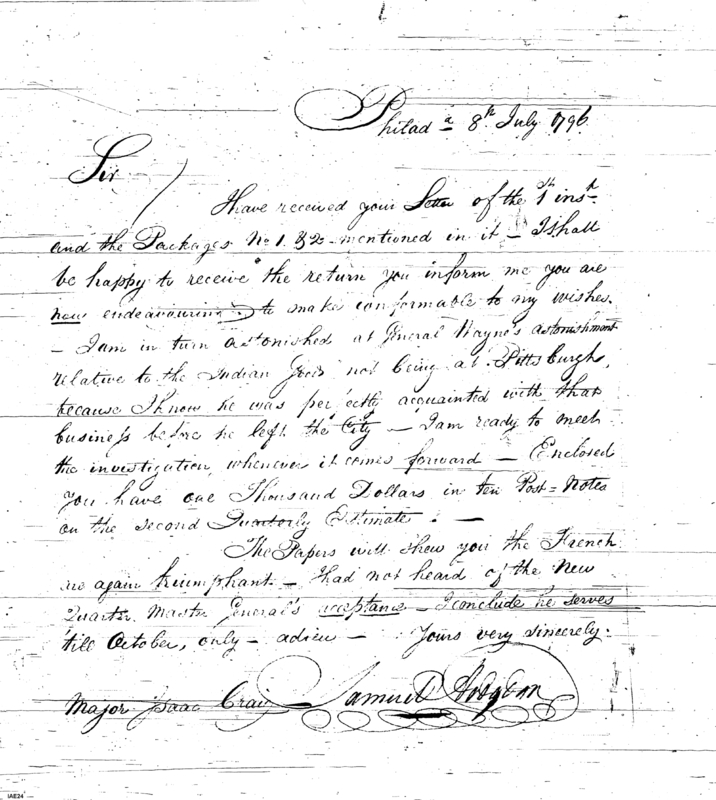 Philad a 8th July 1796
Sir
I have received your Letter of the 1st inst
and the Packages No 1. & 2 mentioned in it – I shall
be happy to receive the return you inform me you are
now endeavouring to make conformable to my wishes.
– I am in turn astonished at General Wayne's astonishment
relative to the Indian Goods not being at Pittsburgh,
because I know he was perfectly acquainted with that
business before he left the City – I am ready to meet
the investigation, whenever it comes forward – Enclosed
you have one Thousand Dollars in ten Post=Notes
on the second Quarterly Estimate. –
The Papers will shew you the French
are again triumphant – I had not heard of the New
Quarter Master General's acceptance – I conclude he serves
'till October, only – adieu – Yours very sincerely.
Samuel Hodgdon
Major Isaac Craig
IAE24